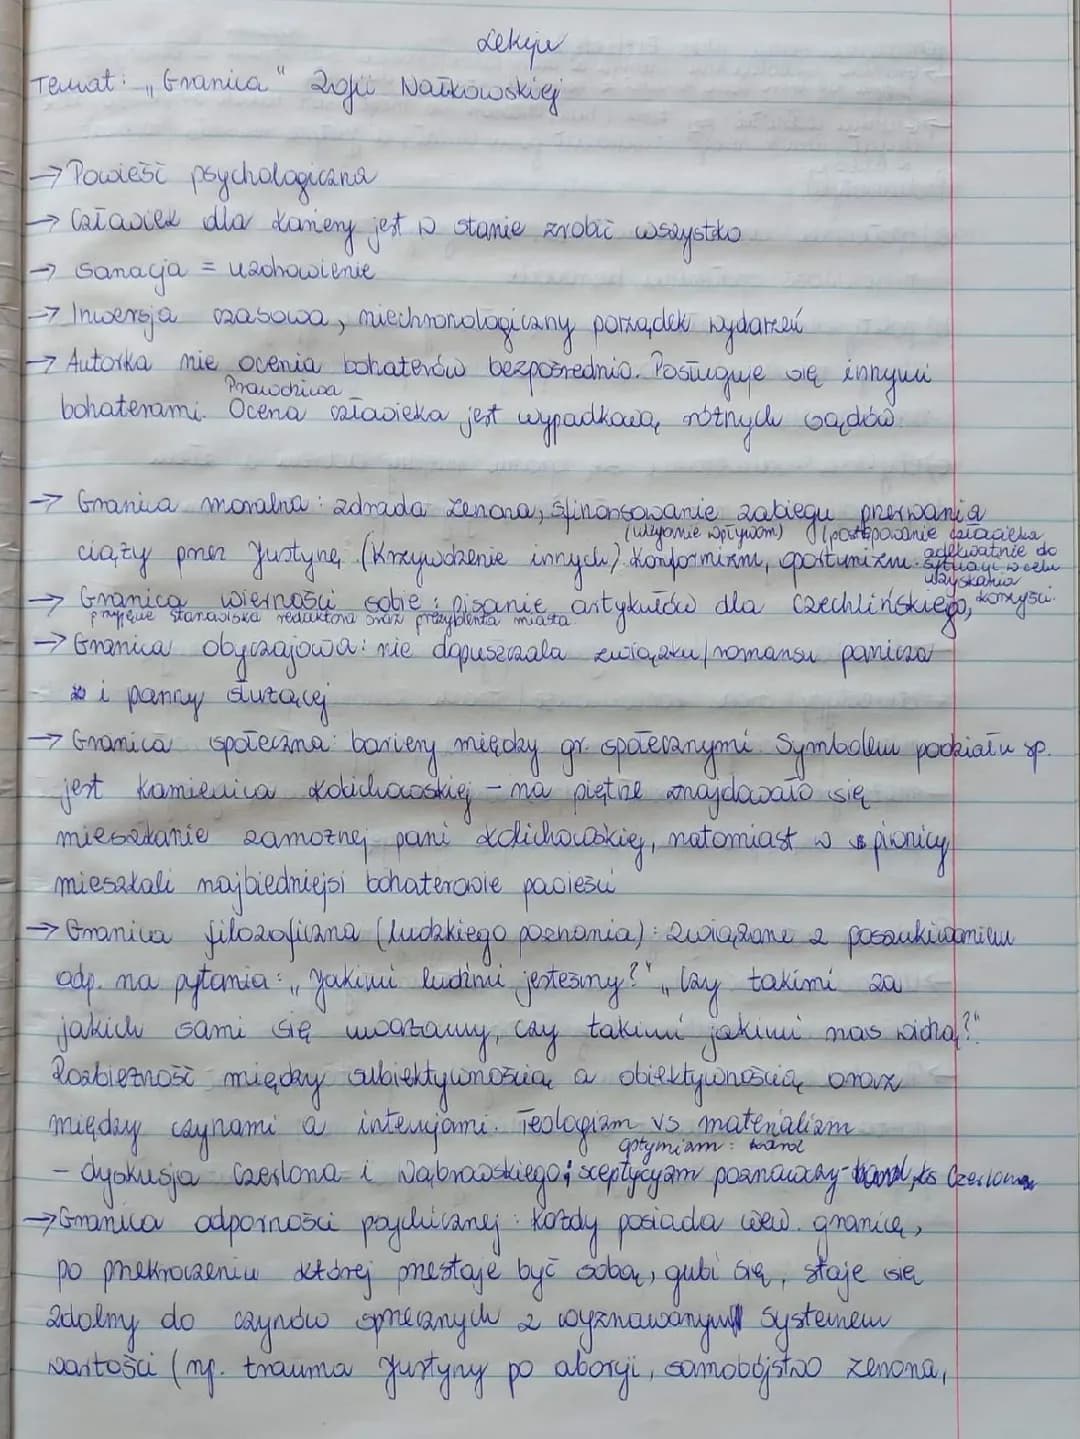 Lekcja
Temat: „Granica" Zofii Nałkowskiej
→ Powieść psychologiczna
→ Człowiek dla kariery jest w stanie zrobić wszystko
→ Sanacja = uzdrowienie
→ Inwersja czasowa, niechronologiczny porządek wydarzeń
→ Autorka nie ocenia bohaterów bezpośrednio. Posługuje się innymi
Prawdziwa
bohaterami. Ocena człowieka jest wypadkową różnych sądów.
→ Granica moralna: zdrada Zenona, sfinansowanie zabiegu przerwania
(uleganie wpływom) (postępowanie człowieka
ciąży przez Justynę. (Krzywdzenie innych) Konformizm, oportunizm. adekwatnie do
sytuacji w celu
uzyskania
→ Granica wierności sobie: pisanie artykułów dla Czechlińskiego, korzyści.
przyjęcie stanowiska redaktora oraz prezydenta miasta
→ Granica obyczajowa: nie dopuszczała związku/romansu panicza
i panny służącej
→ Granica społeczna: bariery między gr. społecznymi. Symbolem podziału sp.
jest kamienica Kolichowskiej – na piętrze znajdowało się
mieszkanie zamożnej pani Kolichowskiej, natomiast w piwnicy
mieszkali najbiedniejsi bohaterowie powieści
→ Granica filozoficzna (ludzkiego poznania): związane z poszukiwaniem
odp. na pytania: „Jakimi ludźmi jesteśmy?" „Czy takimi za
jakich sami się uważamy, czy takimi jakimi nas widzą?"
Rozbieżność między subiektywnością a obiektywnością oraz
między czynami a intencjami. Teologizm vs materializm
optymizm: Karol
– dyskusja Czerlona i Wąbrowskiego; sceptycyzm poznawczy - ks Czerlon
→ Granica odporności psychicznej: każdy posiada wew. granicę,
po przekroczeniu której przestaje być sobą, gubi się, staje się
zdolny do czynów sprzecznych z wyznawanym systemem
wartości (np. trauma Justyny po aborcji, samobójstwo Zenona,